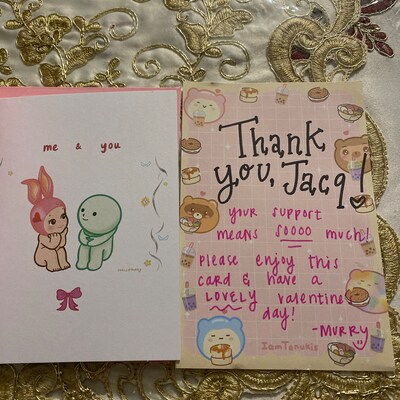 me & you
Thank
you, Jacq!
your support
means soooo much!
Please enjoy this
card & have a
LOVELY valentine
day!
-MURRY
IamTanukis